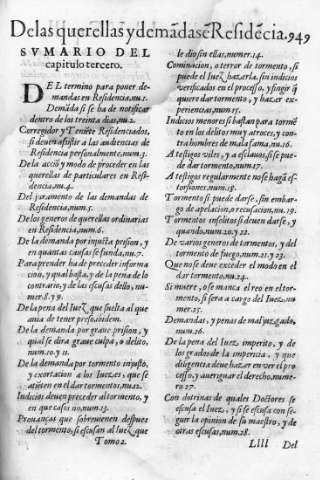 De las querellas y demãdas sẽ Residẽcia. 949
SVMARIO DEL
capitulo tercero.
DEL termino para poner demandas
en Residencia, nu.1.
Demãda si se ha de notificar
dentro de los treinta dias, nu.2.
Corregidor y Teniẽte Residenciados,
si deuen assistir a las audiencias de
Residencia personalmente, num.3.
De la acciõ y modo de proceder en las
querellas de particulares en Residencia,
nu.4.
Del juramento de las demandas de
Residencia, num.5.
De los generos de querellas ordinarias
en Residencia, num.6.
De la demanda por injusta prision, y
en quantas causas se funda, nu.7.
Para prender ha de preceder informacion,
y qual basta, y de la pena de lo
contrario, y de las escusas dello, numer.8.
y 9.
De la pena del Iuez que suelta al que
auia de tener preso, ibidem.
De la demanda por graue prision, y
qual se dira graue culpa, o delito,
num.10. y 11.
De la demanda por tormento injusto,
y exortacion a los Iuezes, que se
atiẽten en el dar tormento, nu.12.
Indicios deuen preceder al tormento, y
en que casos no, num.13.
Prouanças que sobreuienen despues
del tormento, si escusan al Iuez que
Tomo 2.
le dio sin ellas, numer.14.
Cominacion, o terror de tormento, si
puede el Iuez hazerla, sin indicios
verificados en el processo, y fingir q̃
quiere dar tormento, y hazer experiencias,
num.15.
Indicios menores si bastan para tormẽto
en los delitos muy atroces, y contra
hombres de mala fama, nu.16.
A testigos viles, y a esclauos, si se puede
dar tormento, num.17.
A testigos regularmente no se haga extorsiones,
num.18.
Tormento si puede darse, sin embargo
de apelacion, o recusacion, nu.19.
Tormentos insolitos si deuen darse, y
quando, num.20. y 22.
De varios generos de tormentos, y del
tormento de fuego, num.21. y 23.
Que no se deue exceder el modo en el
dar tormento, nu.24.
Si muere, o se manca el reo en el tormento,
si sera a cargo del Iuez, numer.25.
Demandas, y penas de mal juzgado,
num.26.
De la pena del Iuez imperito, y de
los grados de la impericia, y que
diligencia deue hazer en ver el processo,
y aueriguar el derecho, numero
27.
Con dotrinas de quales Doctores se
escusa el Iuez, y si se escusa con seguir
la opinion de su maestro, y de
otras escusas, num.28.
Llll Del